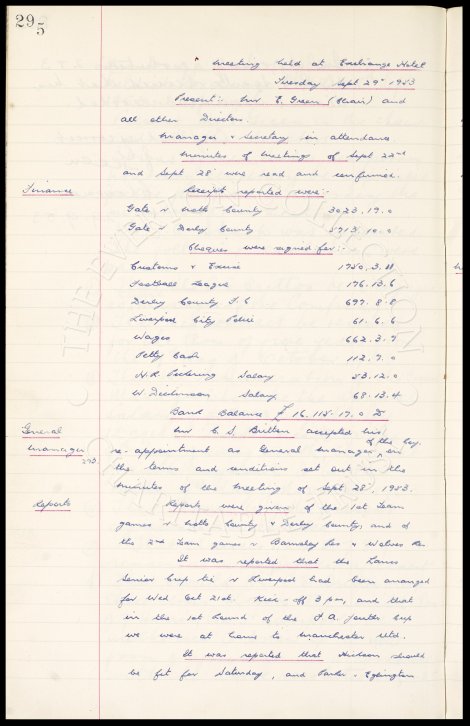 295
Meeting held at Exchange Hotel
Tuesday Sept 29th 1953
Present:- Mr E. Green (Chair) and
all other Directors.
Manager & Secretary in attendance
Minutes of meetings of Sept 22nd
and Sept 28th were read and confirmed.
Finance
Receipts reported were:-
Gate v Notts County 3023.19.0
Gate v Derby County 5713.10.0
Cheques were signed for:-
Customs & Excise 1750.3.11
Football League 176.13.6
Derby County F.C 697.8.8
Liverpool City Police 61.6.6
Wages 662.3.7
Petty Cash 112.7.0
H.R. Pickering Salary 53.12.0
W. Dickinson Salary 68.13.4
Bank Balance £16.115.17.0
General Manager
293
Mr C. S. Britton accepted his
re-appointment as General Manager of the Coy. on
the terms and conditions set out in the
minutes of the meeting of Sept 28th, 1953.
Reports
Reports were given of the 1st Team
games v Notts County & Derby County, and of
the 2nd Team games v Barnsley Res & Wolves Res
It was reported that the Lancs
Senior Cup tie v Liverpool had been arranged
for Wed Oct 21st. Kick-off 3 pm, and that
in the 1st Round of the F.A. Youth Cup
we were at home to Manchester Utd.
It was reported that Hickson should
be fit for Saturday, and Parker & Eglington
THE EVERTON COLLECTION